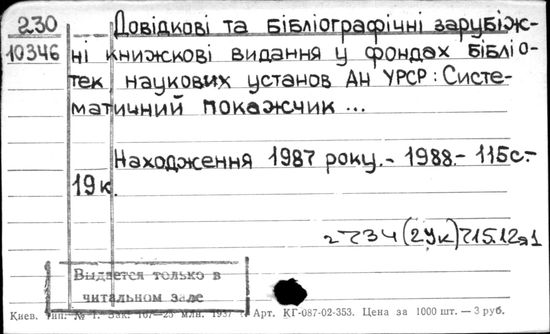 230
10346
Довідкові та бібліографічні зарубіж-
ні книжкові видання у фондах бібліо-
тек наукових установ Ан УРСР: Систе-
матичний покажчик ...
Находження 1987 року.- 1988.- 115с.-
19к.
Выдается только в
читальном зале
Киев. Тип. № 1. Зак. млн. 1957 Арт. КГ-087-02-353. Цена за 1000 шт. — 3 руб.